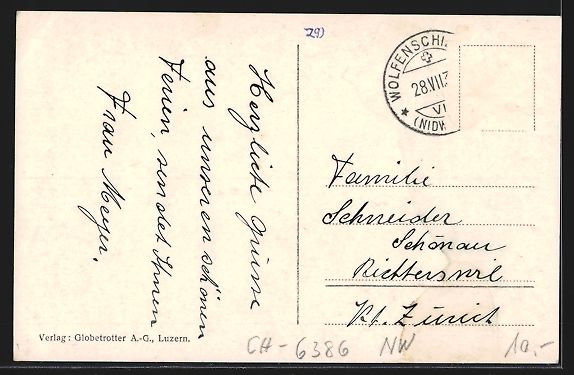 29)
Herzliche Grüsse
aus unseren schönen
Ferien, sendet Ihnen
Frau Meyer.
WOLFENSCHI
28.VII.3
VI
(NIDW
Familie
Schneider
Schönau
Richterswil
Kt. Zürich
Verlag: Globetrotter A.-G., Luzern.
CH-6386 NW 10,-